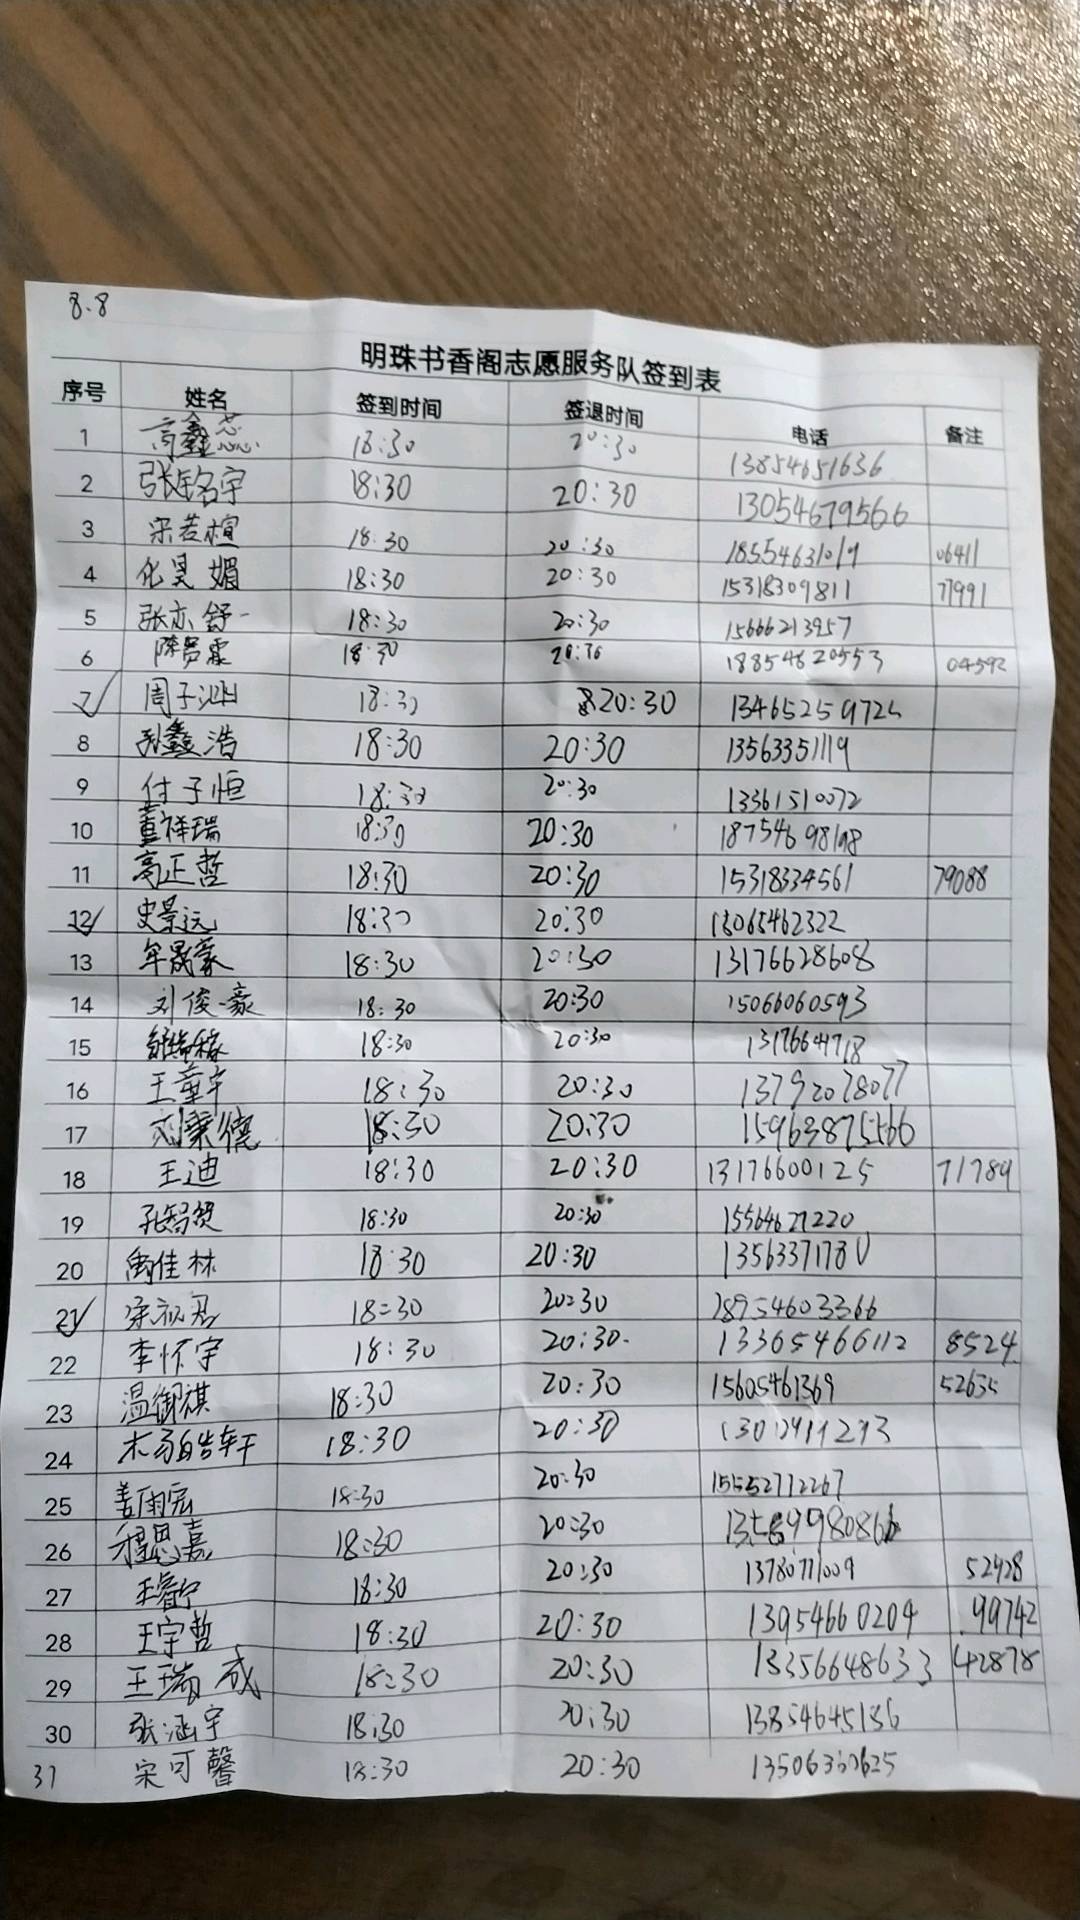 8.8
明珠书香阁志愿服务队签到表
序号 姓名 签到时间 签退时间 电话 备注
1 高鑫蕊 18:30 20:30 13854651636
2 张铭宇 18:30 20:30 13054679566
3 宋若楦 18:30 20:30 18554631019 06411
4 化昊媚 18:30 20:30 15318309811 77991
5 张亦舒 18:30 20:30 15666213957
6 18:30 20:30 18854620553 04592
7 周子 18:30 20:30
8 孙鑫浩 18:30 20:30 13563351119
9 付子恒 18:30 20:30 13361510072
10 董祥瑞 18:30 20:30
11 高正哲 18:30 20:30 15318334561 79088
12 史景远 18:30 20:30 13065462322
13 牟晟豪 18:30 20:30 13176628608
14 刘俊豪 18:30 20:30 15066060593
15 18:30 20:30
16 王童宇 18:30 20:30 13792078077
17 刘秉德 18:30 20:30
18 王迪 18:30 20:30 13176600125 71789
19 孔智贺 18:30 20:30 15564621220
20 禹佳林 18:30 20:30 13563371780
21 18:30 20:30
22 李怀宇 18:30 20:30 13365466112 8524
23 温御祺 18:30 20:30 15605461369 52635
24 杨皓轩 18:30 20:30
25 姜雨宏 18:30 20:30 15552712267
26 程思嘉 18:30 20:30
27 王睿宁 18:30 20:30 13780771009 52928
28 王宇哲 18:30 20:30 13954660204 99742
29 王瑞成 18:30 20:30 13356648633 42878
30 张涵宇 18:30 20:30 13854645136
31 宋可馨 18:30 20:30